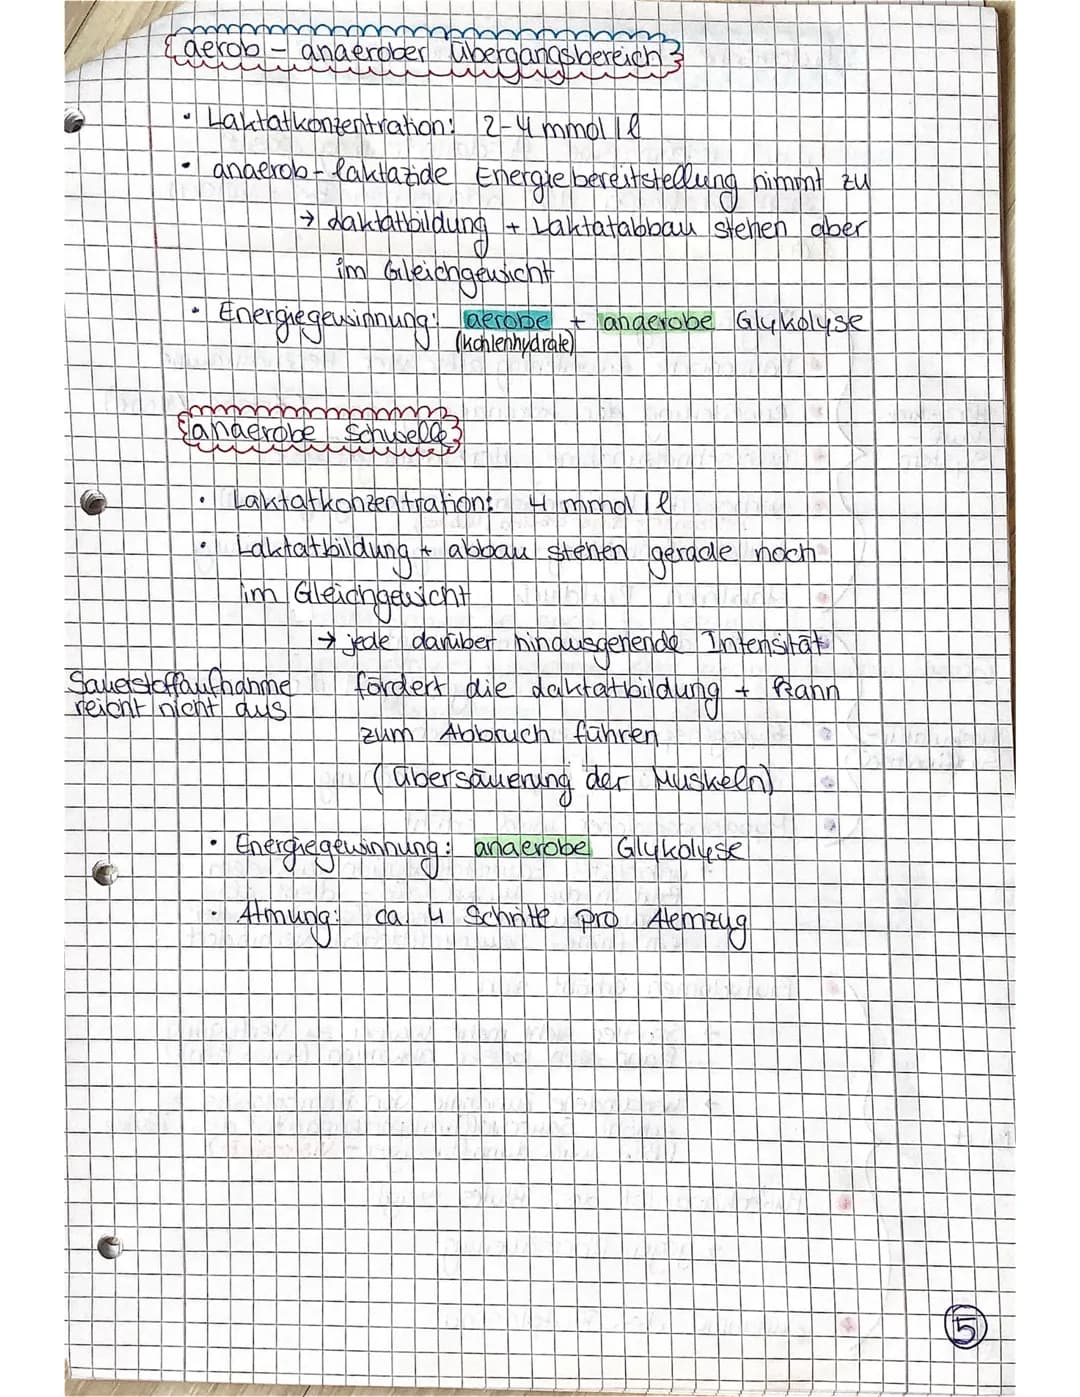 aerob - anaerober Übergangsbereich
• Laktatkonzentration: 2-4 mmol/l
• anaerob-laktazide Energiebereitstellung nimmt zu
→ Laktatbildung + Laktatabbau stehen aber
im Gleichgewicht
• Energiegewinnung: aerobe + anaerobe Glykolyse
(Kohlenhydrate)
anaerobe Schwelle
• Laktatkonzentration: 4 mmol/l
• Laktatbildung + abbau stehen gerade noch
im Gleichgewicht
→ jede darüber hinausgehende Intensität
Sauerstoffaufnahme
reicht nicht aus
fördert die Laktatbildung + kann
zum Abbruch führen
(Übersäuerung der Muskeln)
• Energiegewinnung: anaerobe Glykolyse
• Atmung: ca. 4 Schritte pro Atemzug
5